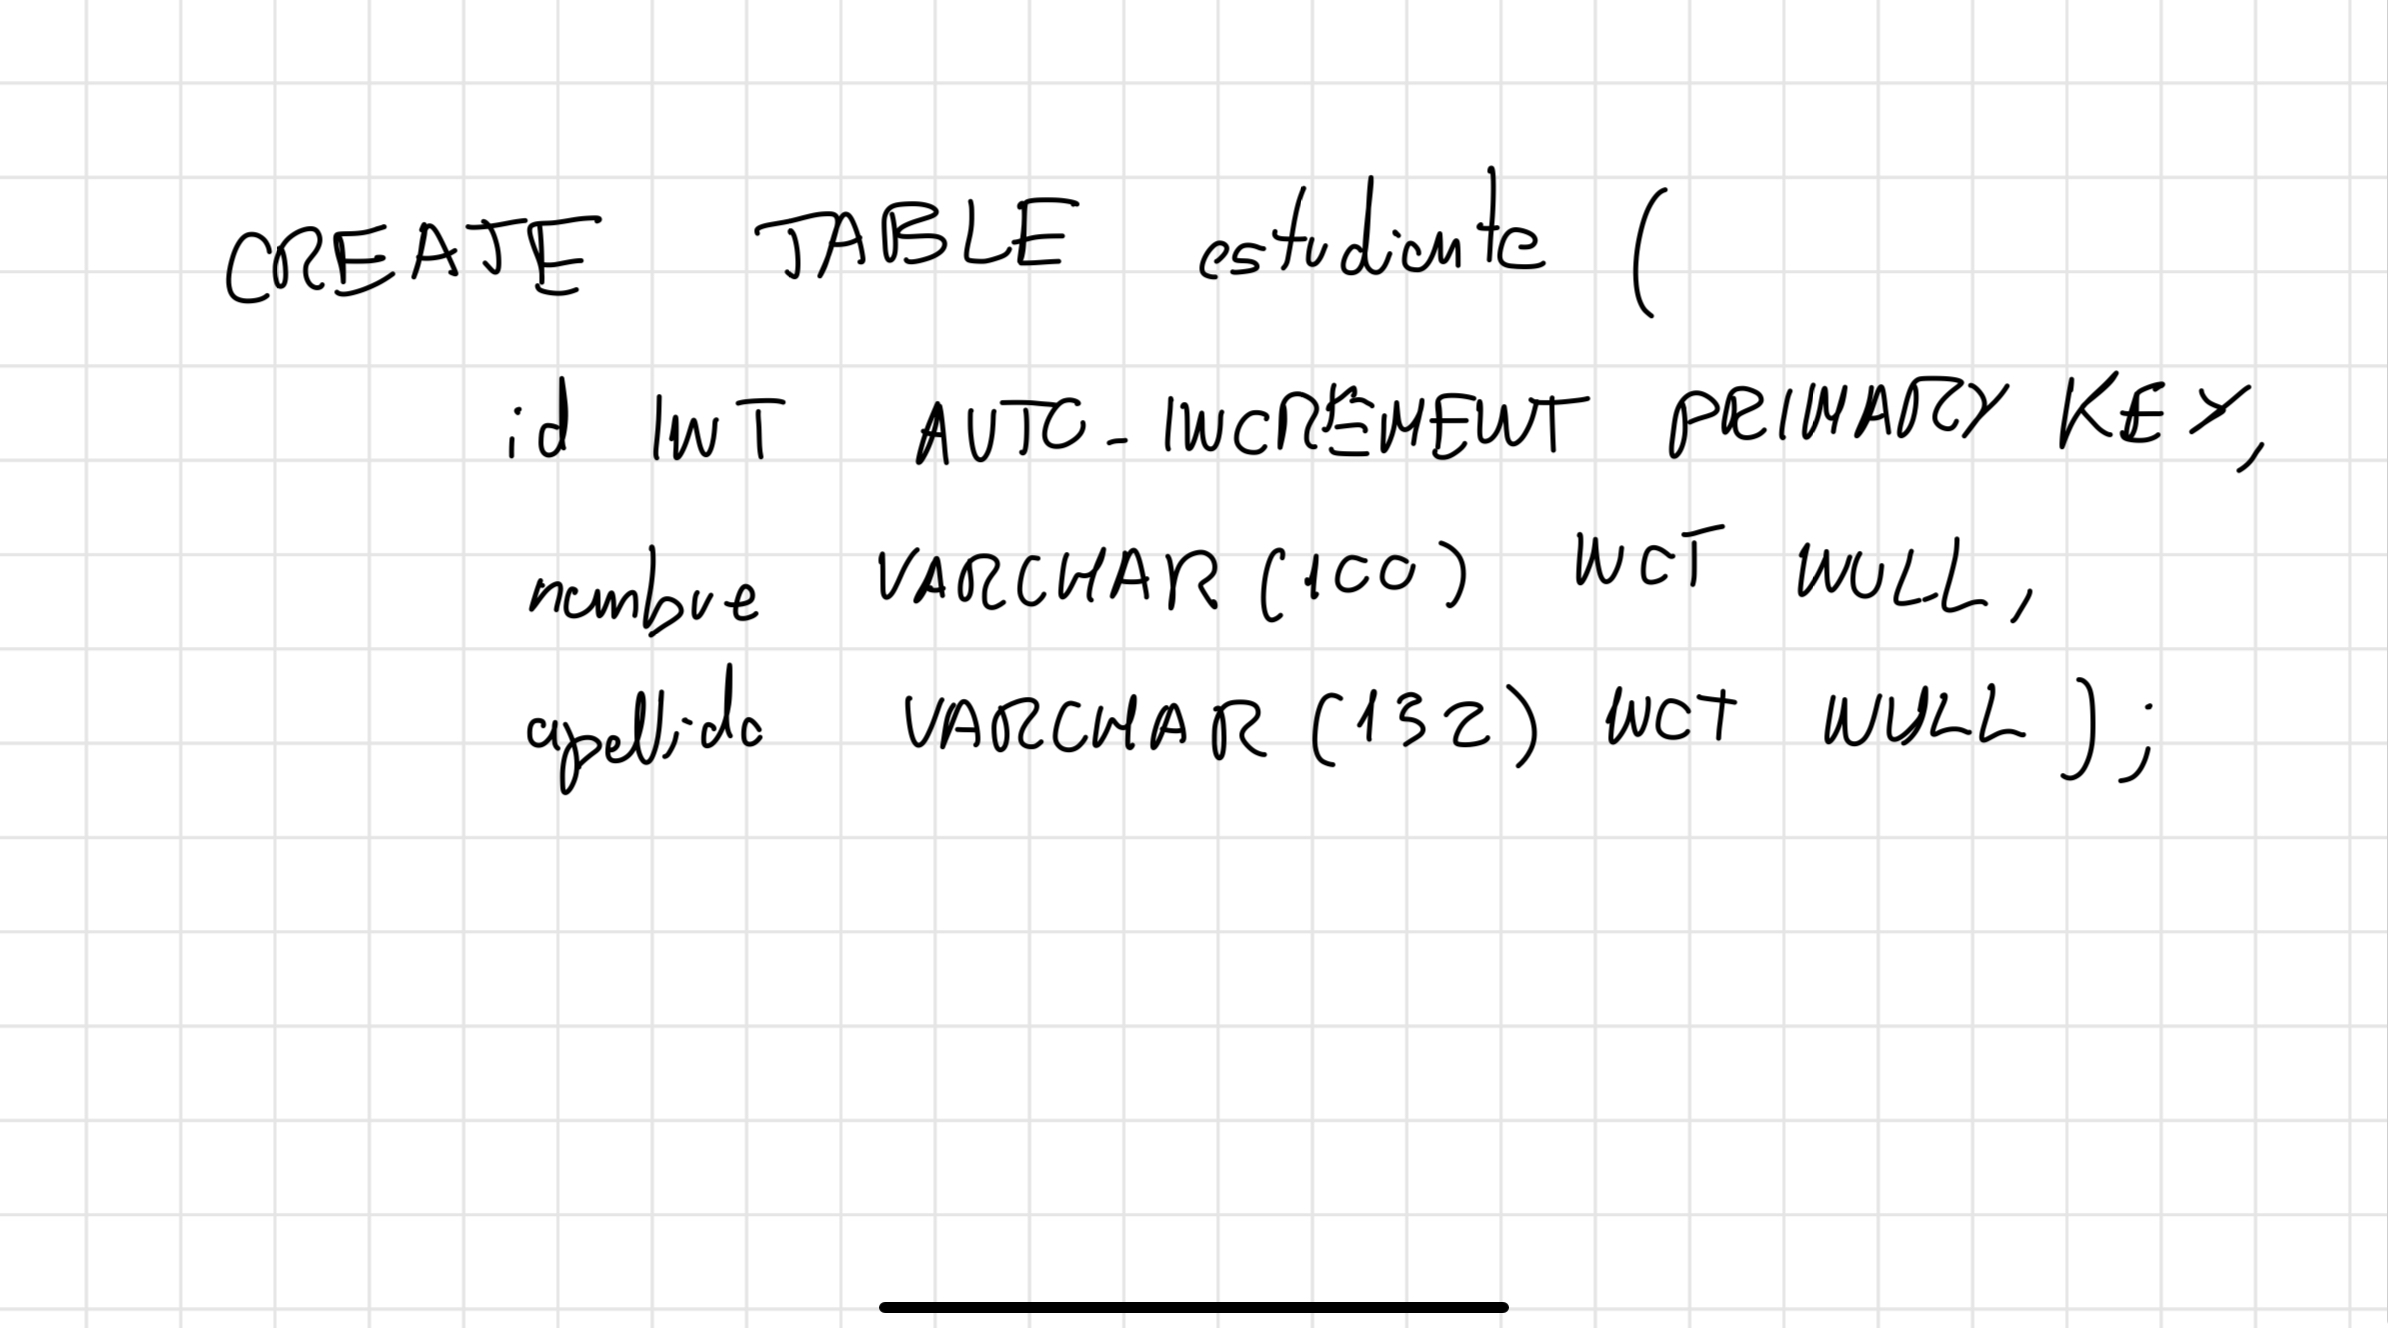 CREATE TABLE estudiante (
id INT AUTO_INCREMENT PRIMARY KEY,
nombre VARCHAR (100) NOT NULL,
apellido VARCHAR (132) NOT NULL );